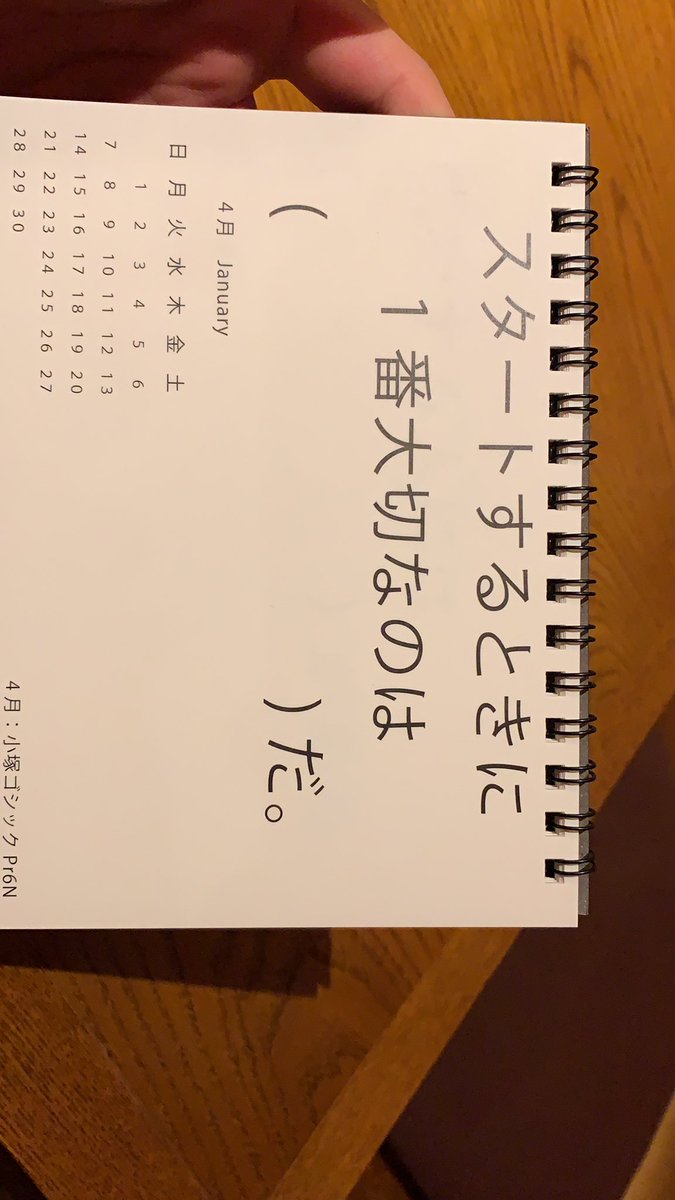 スタートするときに
1番大切なのは
(　　　　　)だ。
4月 January
日 月 火 水 木 金 土
1 2 3 4 5 6
7 8 9 10 11 12 13
14 15 16 17 18 19 20
21 22 23 24 25 26 27
28 29 30
4月：小塚ゴシック Pr6N